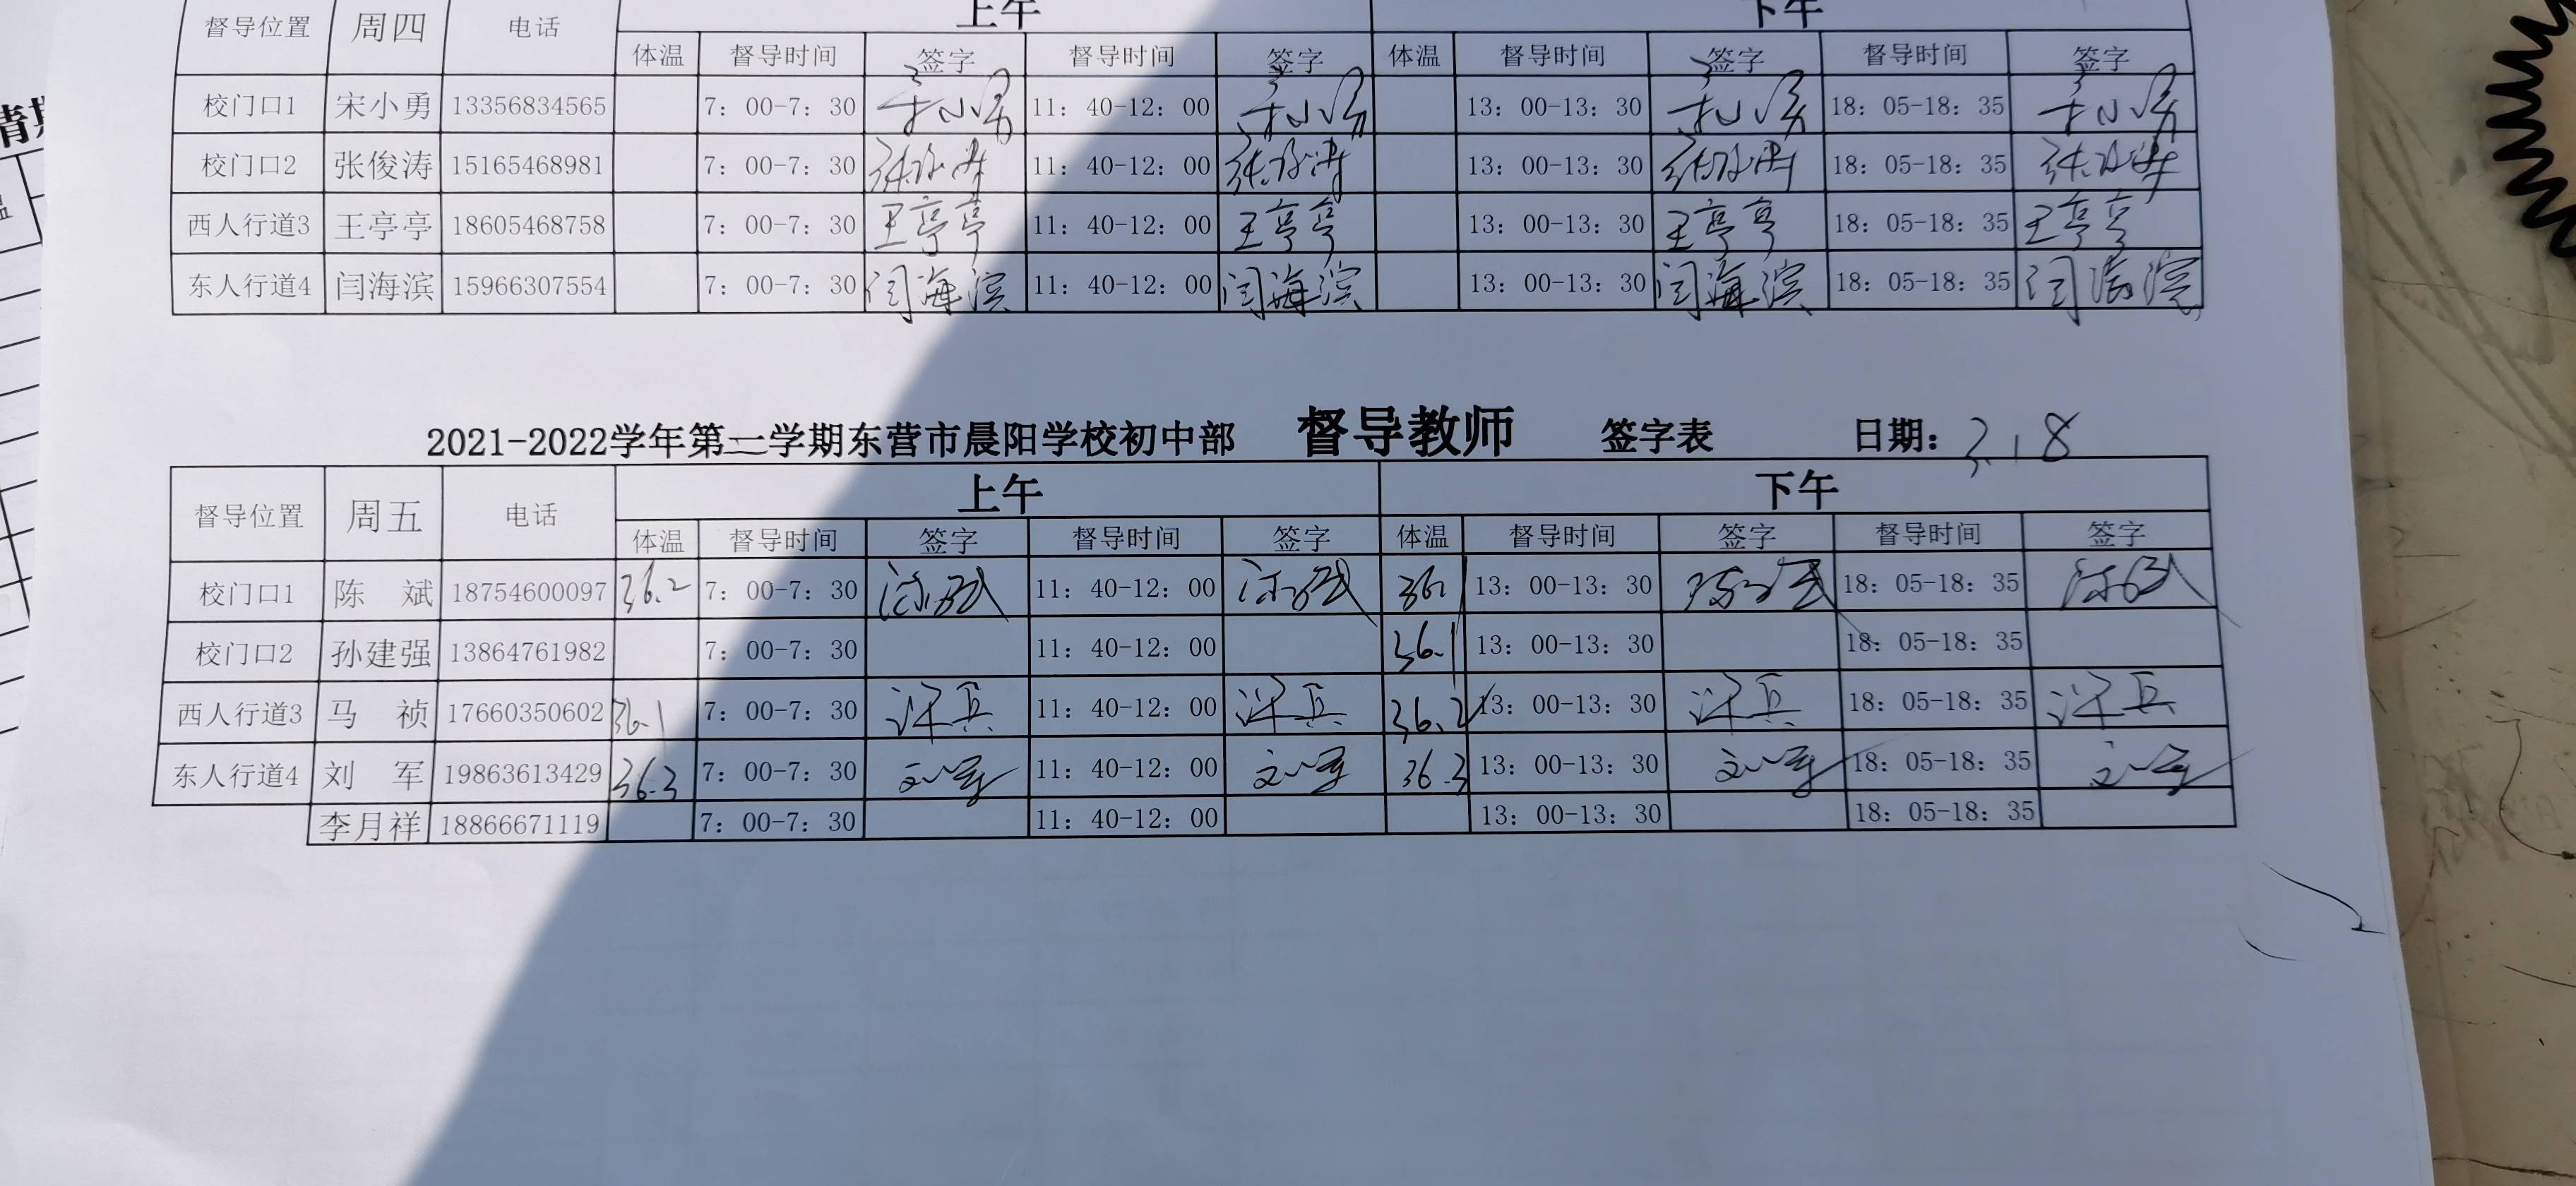 上午 下午
督导位置 周四 电话 体温 督导时间 签字 督导时间 签字 体温 督导时间 签字 督导时间 签字
校门口1 宋小勇 13356834565 7：00-7：30 宋小勇 11：40-12：00 宋小勇 13：00-13：30 宋小勇 18：05-18：35 宋小勇
校门口2 张俊涛 15165468981 7：00-7：30 张俊涛 11：40-12：00 张俊涛 13：00-13：30 张俊涛 18：05-18：35 张俊涛
西人行道3 王亭亭 18605468758 7：00-7：30 王亭亭 11：40-12：00 王亭亭 13：00-13：30 王亭亭 18：05-18：35 王亭亭
东人行道4 闫海滨 15966307554 7：00-7：30 闫海滨 11：40-12：00 闫海滨 13：00-13：30 闫海滨 18：05-18：35 闫海滨
2021-2022学年第二学期东营市晨阳学校初中部 督导教师 签字表 日期：3.18
上午 下午
督导位置 周五 电话 体温 督导时间 签字 督导时间 签字 体温 督导时间 签字 督导时间 签字
校门口1 陈 斌 18754600097 36.2 7：00-7：30 陈斌 11：40-12：00 陈斌 36.1 13：00-13：30 陈斌 18：05-18：35 陈斌
校门口2 孙建强 13864761982 7：00-7：30 11：40-12：00 36.1 13：00-13：30 18：05-18：35
西人行道3 马 祯 17660350602 36.1 7：00-7：30 许兵 11：40-12：00 许兵 36.2 13：00-13：30 许兵 18：05-18：35 许兵
东人行道4 刘 军 19863613429 36.3 7：00-7：30 刘军 11：40-12：00 刘军 36.3 13：00-13：30 刘军 18：05-18：35 刘军
李月祥 18866671119 7：00-7：30 11：40-12：00 13：00-13：30 18：05-18：35